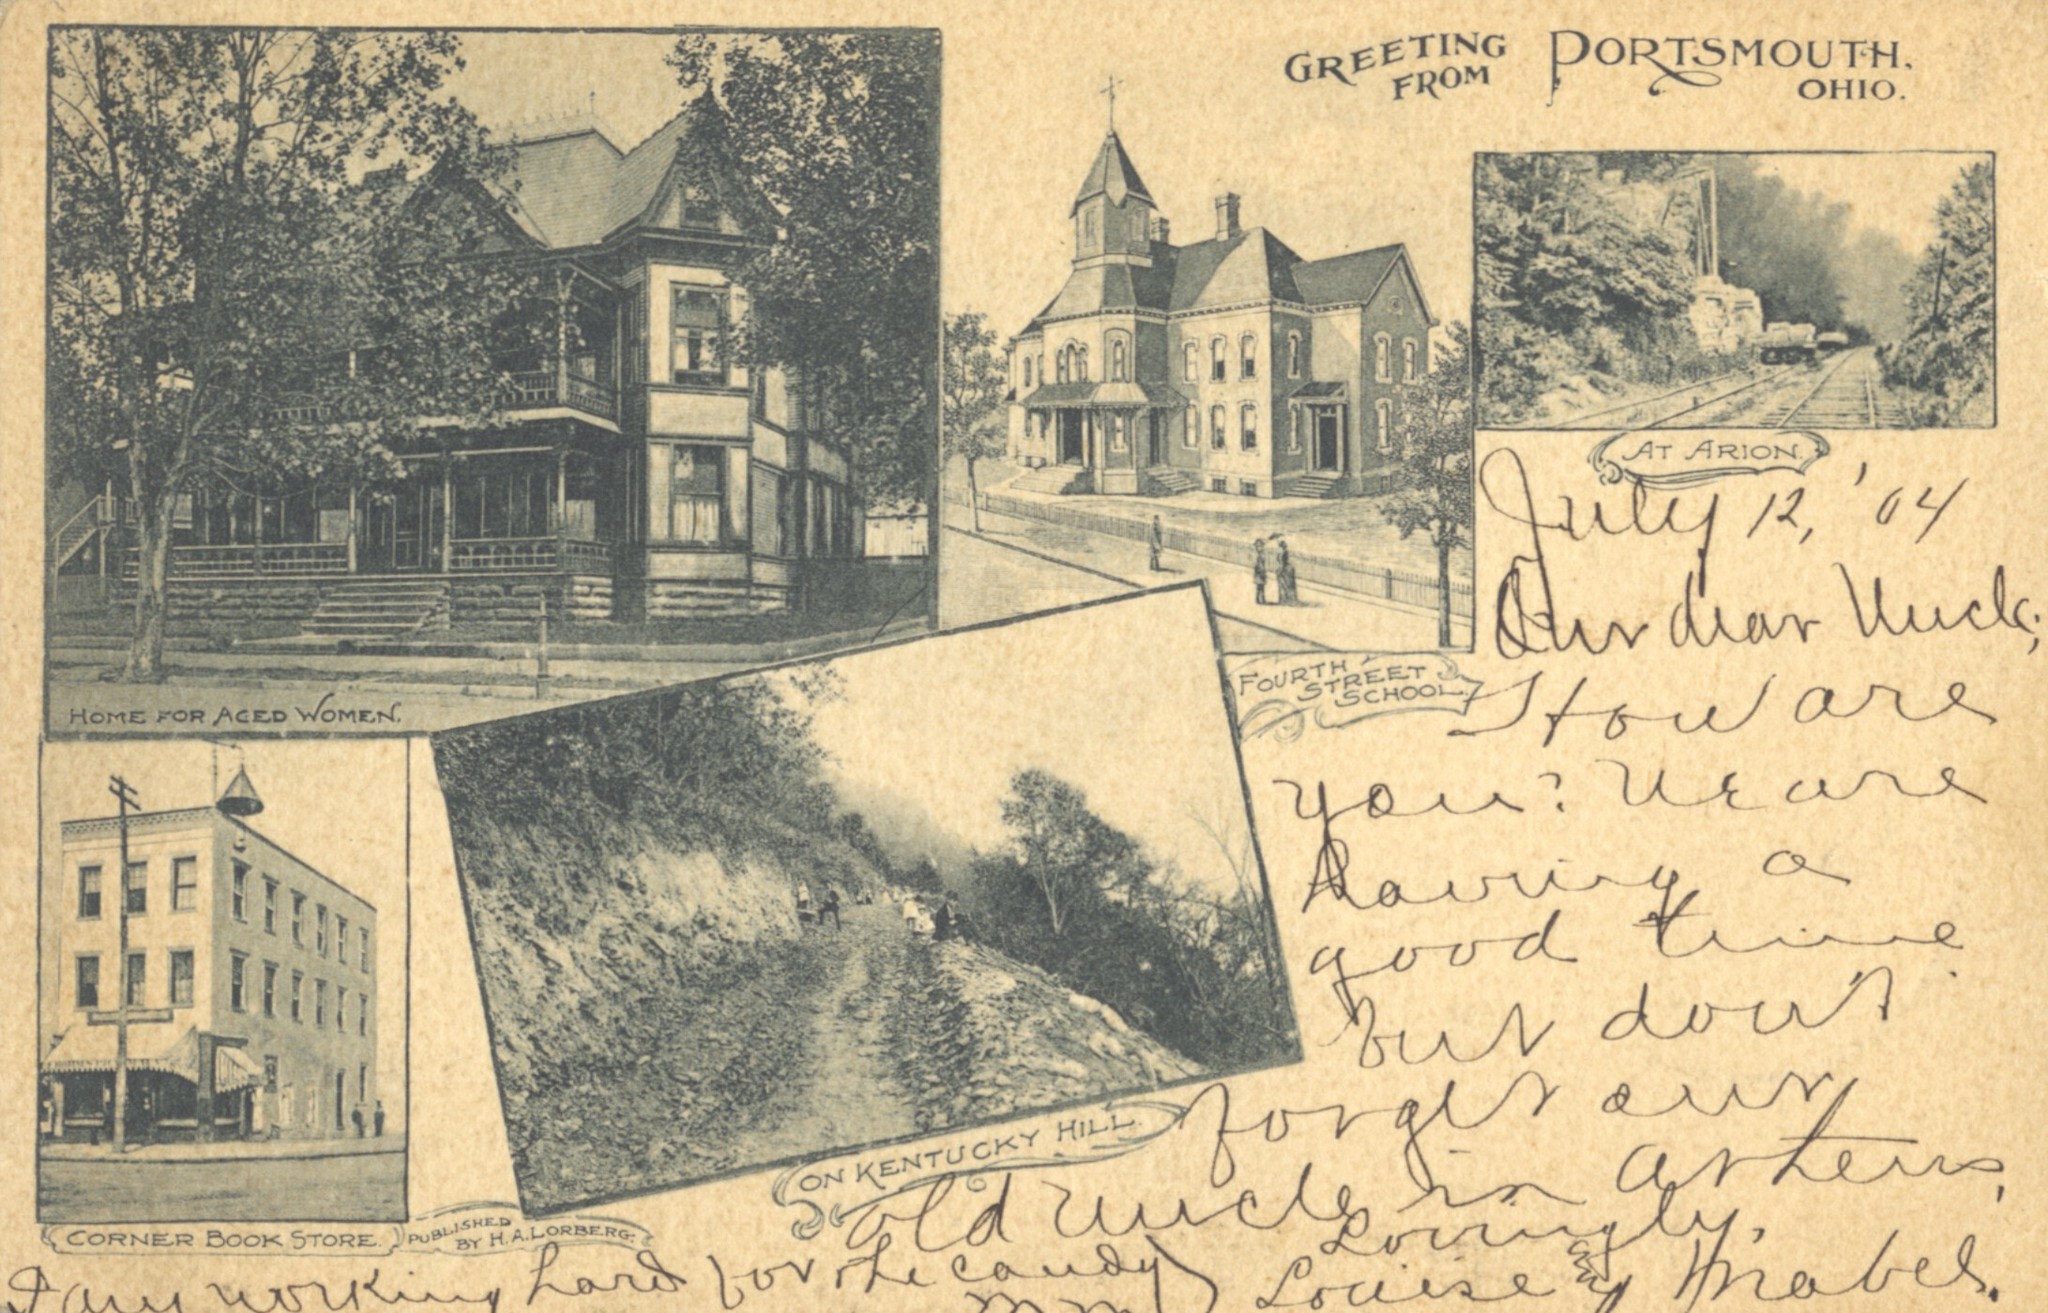 GREETING FROM PORTSMOUTH, OHIO.
HOME FOR AGED WOMEN.
FOURTH STREET SCHOOL.
AT ARION.
CORNER BOOK STORE.
PUBLISHED BY H. A. LORBERG.
ON KENTUCKY HILL.
July 12, '04
Our dear Uncle;
How are
you? We are
having a
good time
but don't
forget our
old Uncle in Athens,
Lovingly,
Louise & Mabel.
I am working hard for the candy